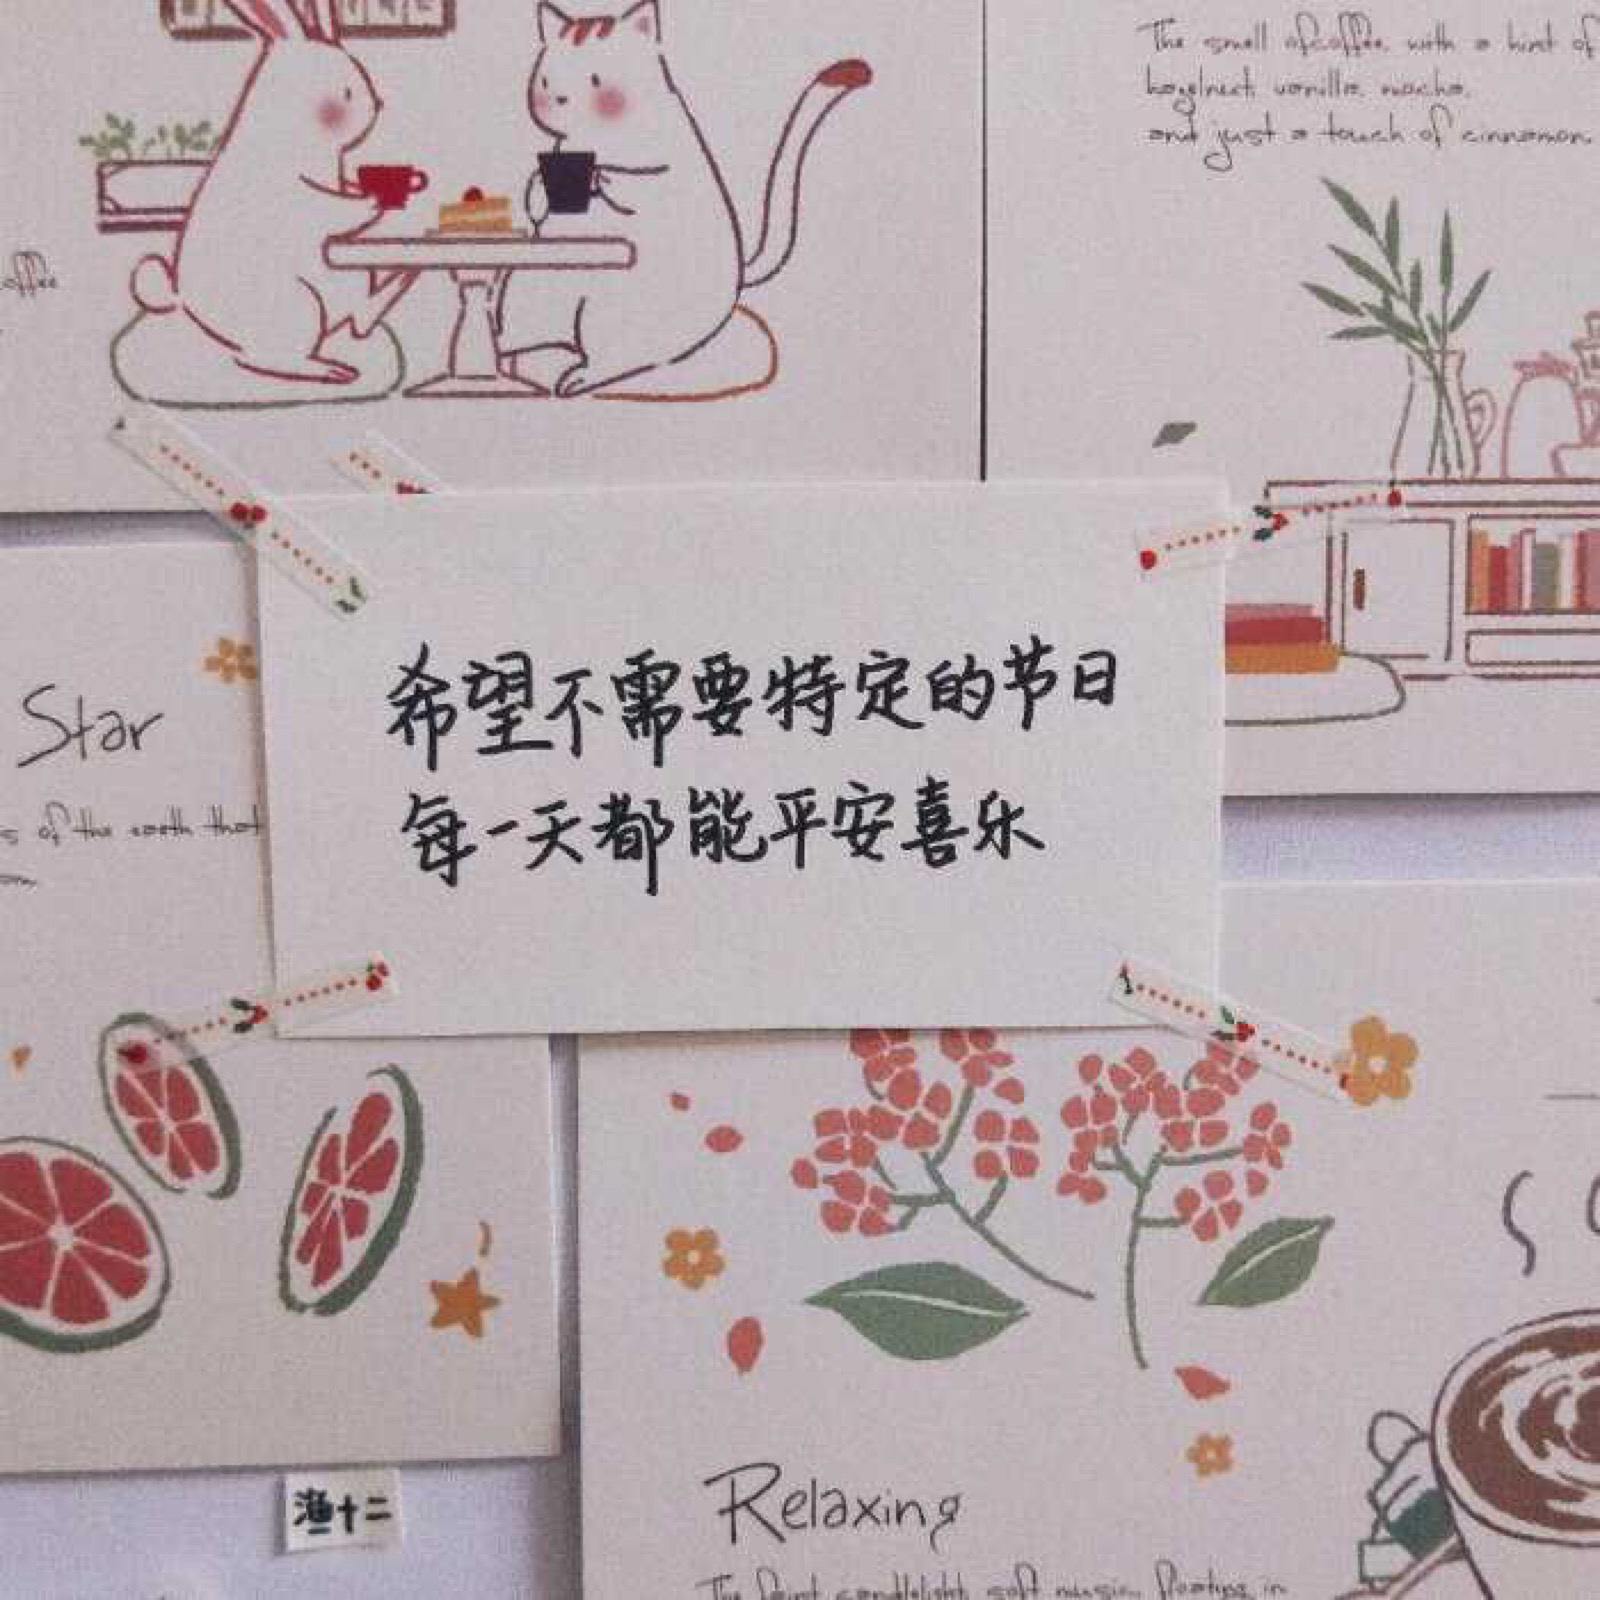 The smell of coffee, with a hint of
hazelnut, vanilla, mocha,
and just a touch of cinnamon.
coffee
希望不需要特定的节日
每一天都能平安喜乐
Star
of the earth that
渔十二
Relaxing
The faint candlelight, soft music, floating in